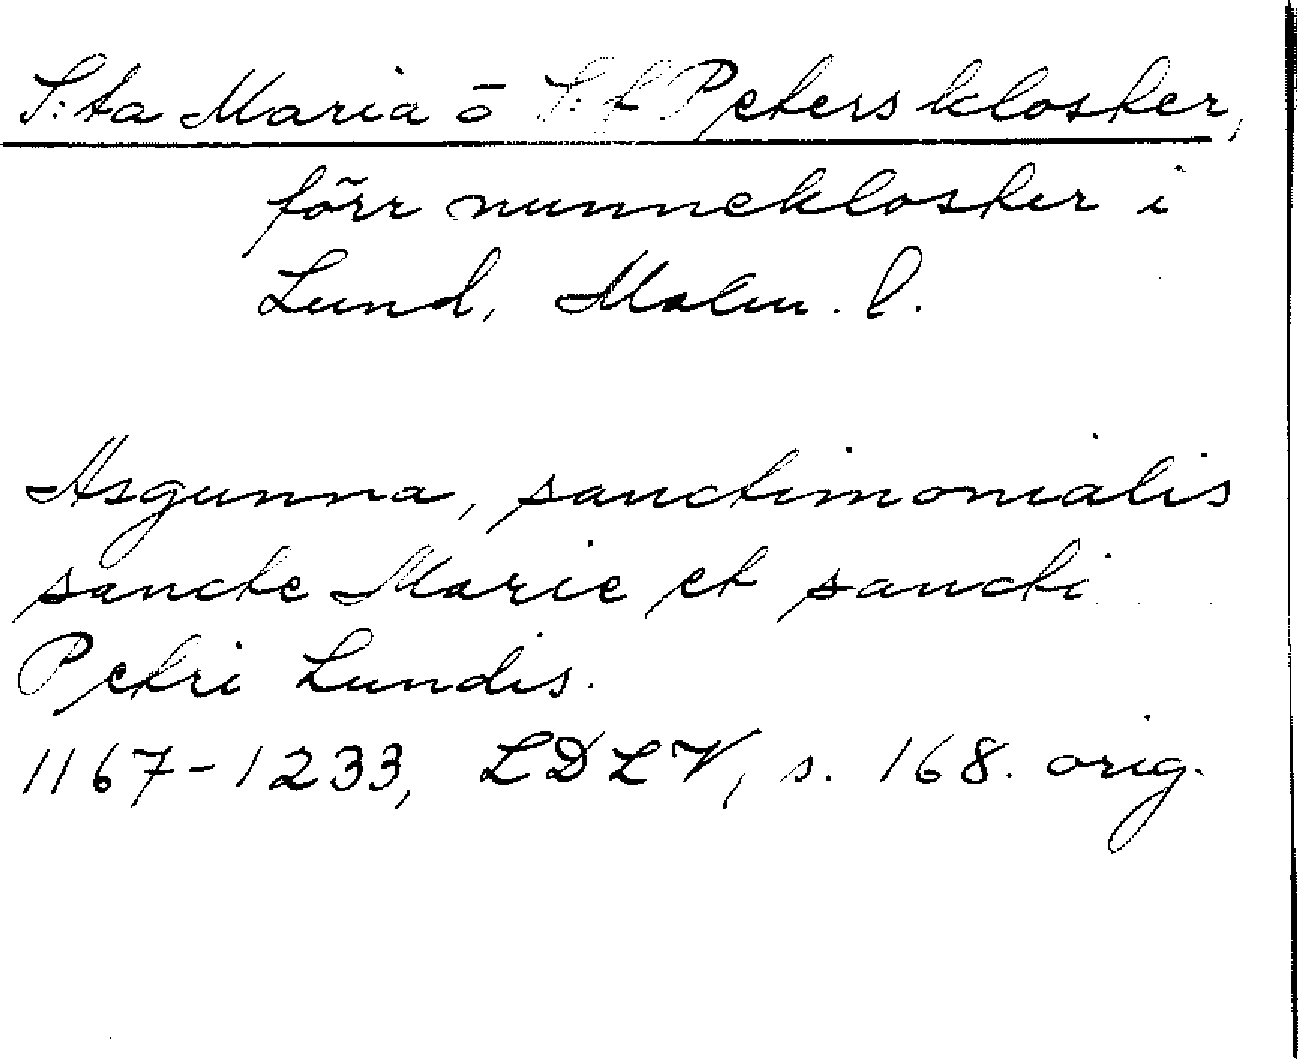 S:ta Maria o S:t Peters kloster,
förr nunnekloster i
Lund, Malm. l.
Asgunna, sanctimonialis
sancte Marie et sancti
Petri Lundis.
1167-1233, LDLV, s. 168. orig.